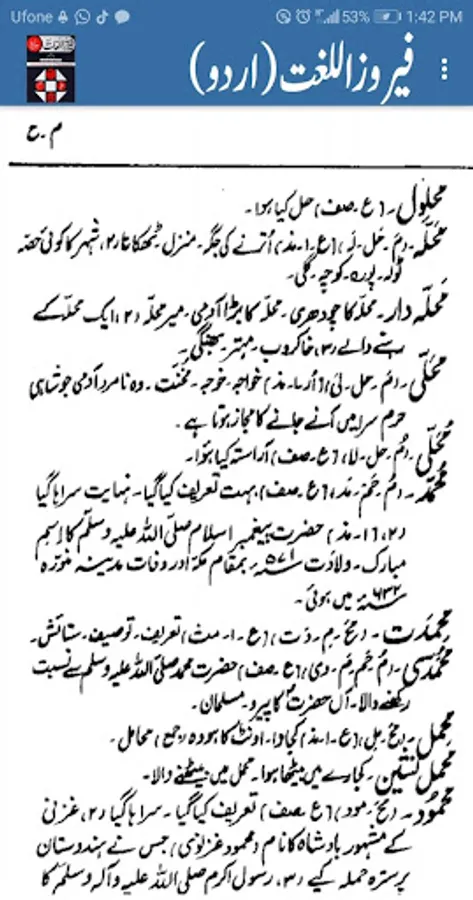 Ufone 53% 1:42 PM
فیروز اللغت (اردو)
م۔ح
محلول۔ (ع۔صف) حل کیا ہوا۔
محلہ۔ (م۔حل۔لہ) (ع۔ا۔مذ) اُترنے کی جگہ۔ منزل ٹھکانا (۲) شہر کا کوئی حصہ
ٹولہ۔ پورہ۔ کوچہ۔ گلی۔
محلہ دار۔ محلہ کا چودھری۔ محلہ کا بڑا آدمی۔ میر محلہ (۲) ایک محلہ کے
رہنے والے (۳) خاکروب۔ مہتر۔ بھنگی۔
محلی۔ (م۔حل۔لی) (اُر۔ا۔مذ) خواجہ۔ خوجہ۔ مخنث۔ وہ نامرد آدمی جو شاہی
حرم سرا میں آنے جانے کا مجاز ہوتا ہے۔
مُحلّٰی۔ (مُ۔حل۔لا) (ع۔صف) آراستہ کیا ہوا۔
مُحمّد۔ (مُ۔حَم۔مَد) (ع۔صف) بہت تعریف کیا گیا۔ نہایت سراہا گیا
(۲) (ا۔مذ) حضرت پیغمبر اسلام صلی اللہ علیہ وسلم کا اسم
مبارک۔ ولادت ۵۷۱ء بمقام مکہ اور وفات مدینہ منورہ
۶۳۲ء میں ہوئی۔
محمدت۔ (مح۔مِ۔دَت) (ع۔ا۔مث) تعریف۔ توصیف۔ ستائش۔
مُحمّدی۔ (مُ۔حَم۔مَ۔دی) (ع۔صف) حضرت محمد صلی اللہ علیہ وسلم سے نسبت
رکھنے والا۔ آں حضرتؐ کا پیرو۔ مسلمان۔
محمل۔ (مح۔مل) (ع۔ا۔مذ) کجاوا۔ اونٹ کا ہودہ (جمع) محامل۔
محمل نشین۔ کجاوے میں بیٹھا ہوا۔ محمل میں بیٹھنے والا۔
محمُود۔ (مح۔مود) (ع۔صف) تعریف کیا گیا۔ سراہا گیا (۲) غزنی
کے مشہور بادشاہ کا نام (محمود غزنوی) جس نے ہندوستان
پر سترہ حملہ کیے (۳) رسول اکرم صلی اللہ علیہ وآلہ وسلم کا